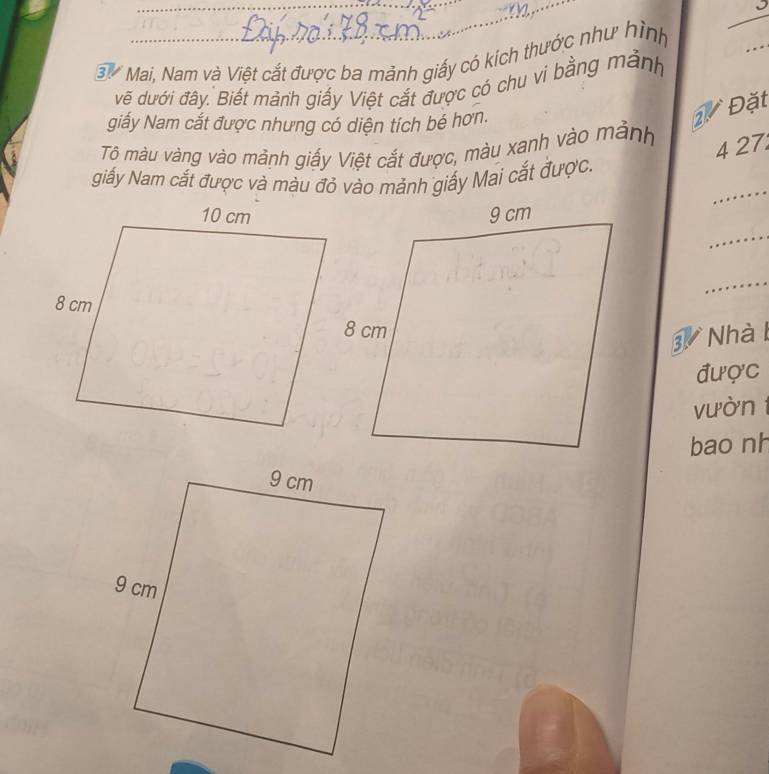 Đáp số: 78 cm²
3 Mai, Nam và Việt cắt được ba mảnh giấy có kích thước như hình
vẽ dưới đây. Biết mảnh giấy Việt cắt được có chu vi bằng mảnh
giấy Nam cắt được nhưng có diện tích bé hơn.
Tô màu vàng vào mảnh giấy Việt cắt được, màu xanh vào mảnh
giấy Nam cắt được và màu đỏ vào mảnh giấy Mai cắt được.
10 cm
9 cm
8 cm
8 cm
9 cm
9 cm
2 Đặt
4 27
3 Nhà
được
vườn
bao nh